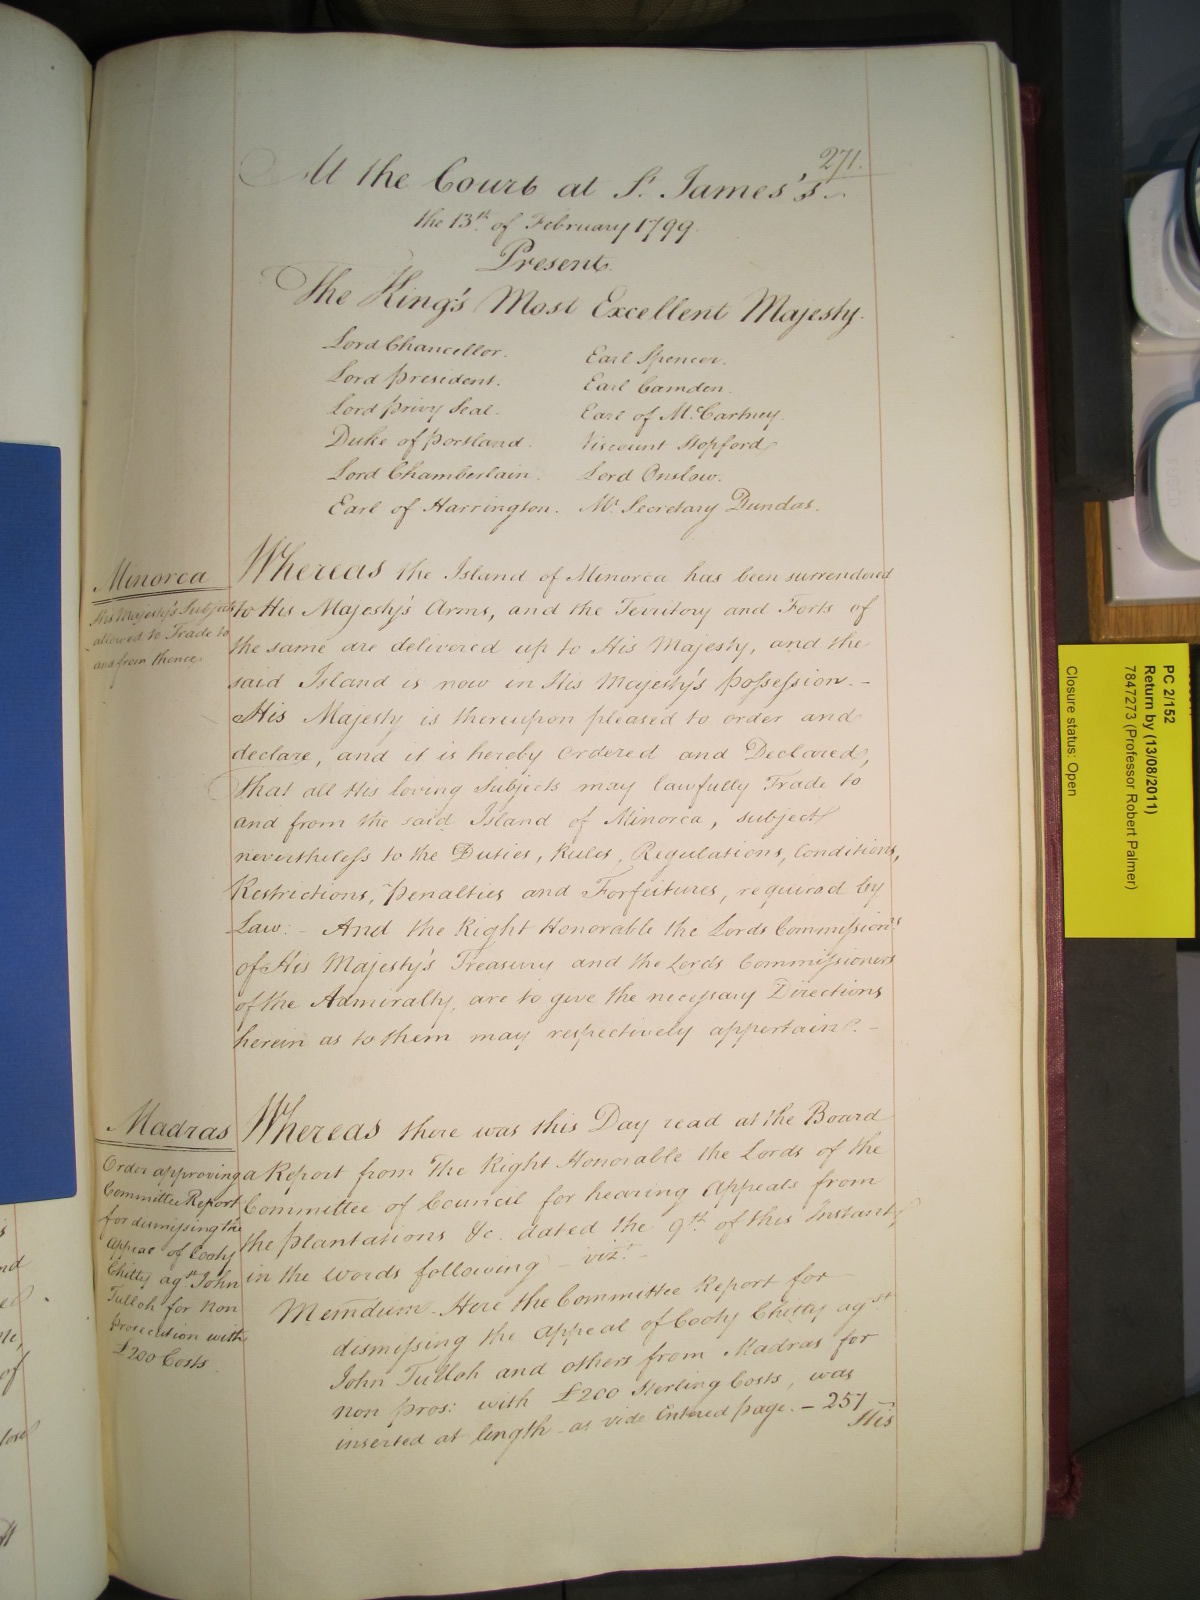 271.
At the Court at St. James's
the 13th. of February 1799.
Present
The King's Most Excellent Majesty.
Lord Chancellor.
Lord President.
Lord Privy Seal.
Duke of Portland.
Lord Chamberlain.
Earl of Harrington.
Earl Spencer.
Earl Camden.
Earl of McCartney.
Viscount Stopford
Lord Onslow.
Mr. Secretary Dundas.
Minorca
His Majesty's Subjects
allowed to Trade to
and from thence
Whereas the Island of Minorca has been surrendered
to His Majesty's Arms, and the Territory and Forts of
the same are delivered up to His Majesty, and the
said Island is now in His Majesty's possession. –
His Majesty is thereupon pleased to order and
declare, and it is hereby Ordered and Declared,
that all His loving Subjects may lawfully Trade to
and from the said Island of Minorca, subject
nevertheless to the Duties, Rules, Regulations, Conditions,
Restrictions, Penalties and Forfeitures, required by
Law: – And the Right Honorable the Lords Commissionrs
of His Majesty's Treasury and the Lords Commissioners
of the Admiralty, are to give the necessary Directions
herein as to them may respectively appertain. –
Madras
Order approving
Committee Report
for dismissing the
Appeal of Cooty
Chitty agst John
Tulloh for Non
Prosecution with
£200 Costs.
Whereas there was this Day read at the Board
a Report from The Right Honorable the Lords of the
Committee of Council for hearing Appeals from
the plantations &c. dated the 9th of this Instant
in the words following – vizt. –
Memdum. Here the Committee Report for
dismissing the Appeal of Cooty Chitty agst
John Tulloh and others from Madras for
non pros: with £200 Sterling Costs, was
inserted at length – as vide Entered page. – 257
His
PC 2/152
Return by (13/08/2011)
7847273 (Professor Robert Palmer)
Closure status: Open